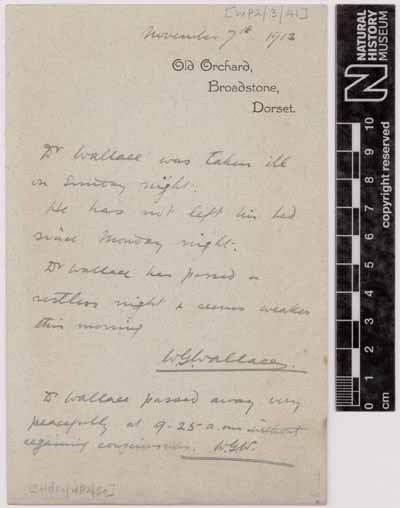 [WP2/3/41]
November 7th 1913
Old Orchard,
Broadstone,
Dorset.
Dr Wallace was taken ill
on Sunday night.
He has not left his bed
since Monday night.
Dr Wallace has passed a
restless night & seems weaker
this morning
W.G. Wallace.
Dr Wallace passed away very
peacefully at 9.25 a.m. without
regaining consciousness. W.G.W.
NATURAL
HISTORY
MUSEUM
copyright reserved
10
9
8
7
6
5
4
3
2
1
0
cm